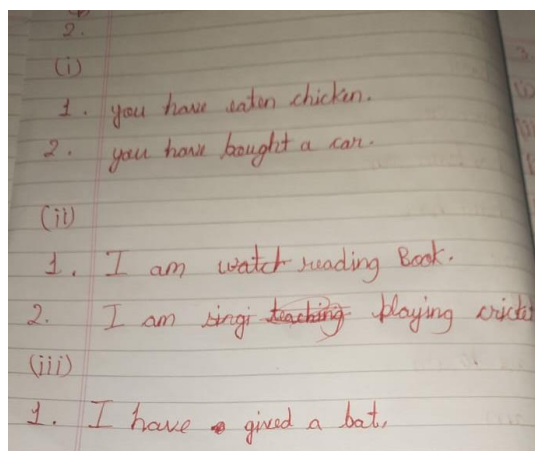 2.
(i)
1. you have eaten chicken.
2. you have bought a car.
(ii)
1. I am watch reading Book.
2. I am singi teaching playing cricket
(iii)
1. I have gived a bat.